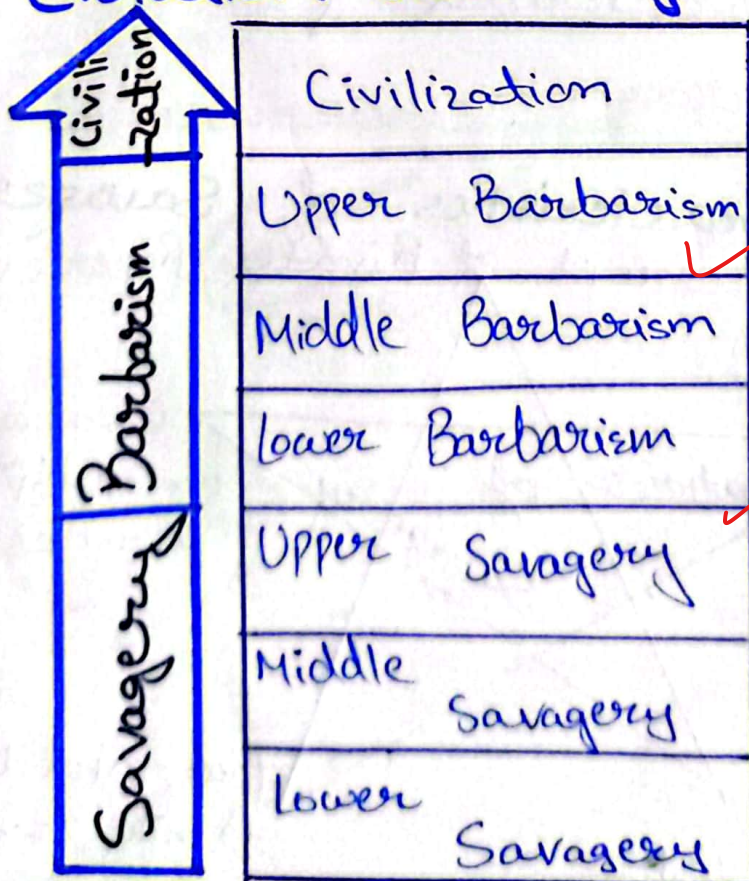 Civili
zation
Barbarism
Savagery
Civilization
Upper Barbarism
Middle Barbarism
Lower Barbarism
Upper Savagery
Middle
Savagery
Lower
Savagery